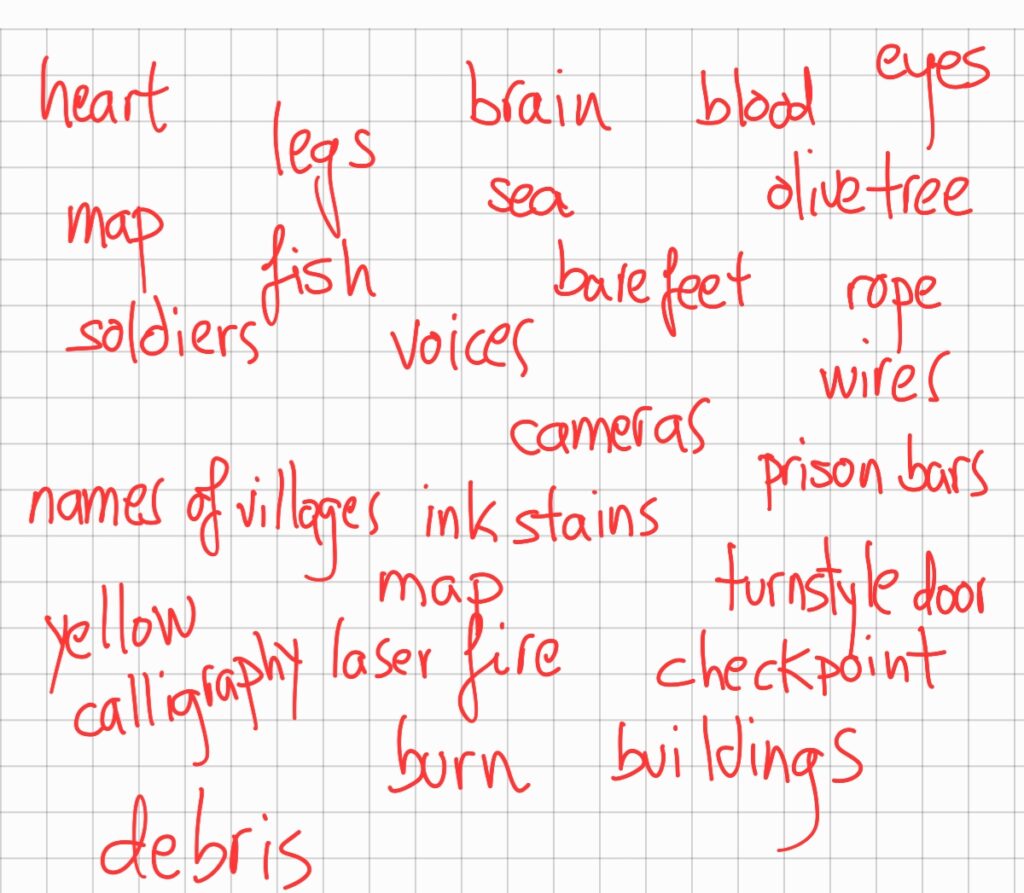 heart brain blood eyes
legs
map sea olive tree
fish bare feet rope
soldiers voices
wires
cameras
prison bars
names of villages ink stains
map turnstyle door
yellow
calligraphy laser fire checkpoint
burn buildings
debris